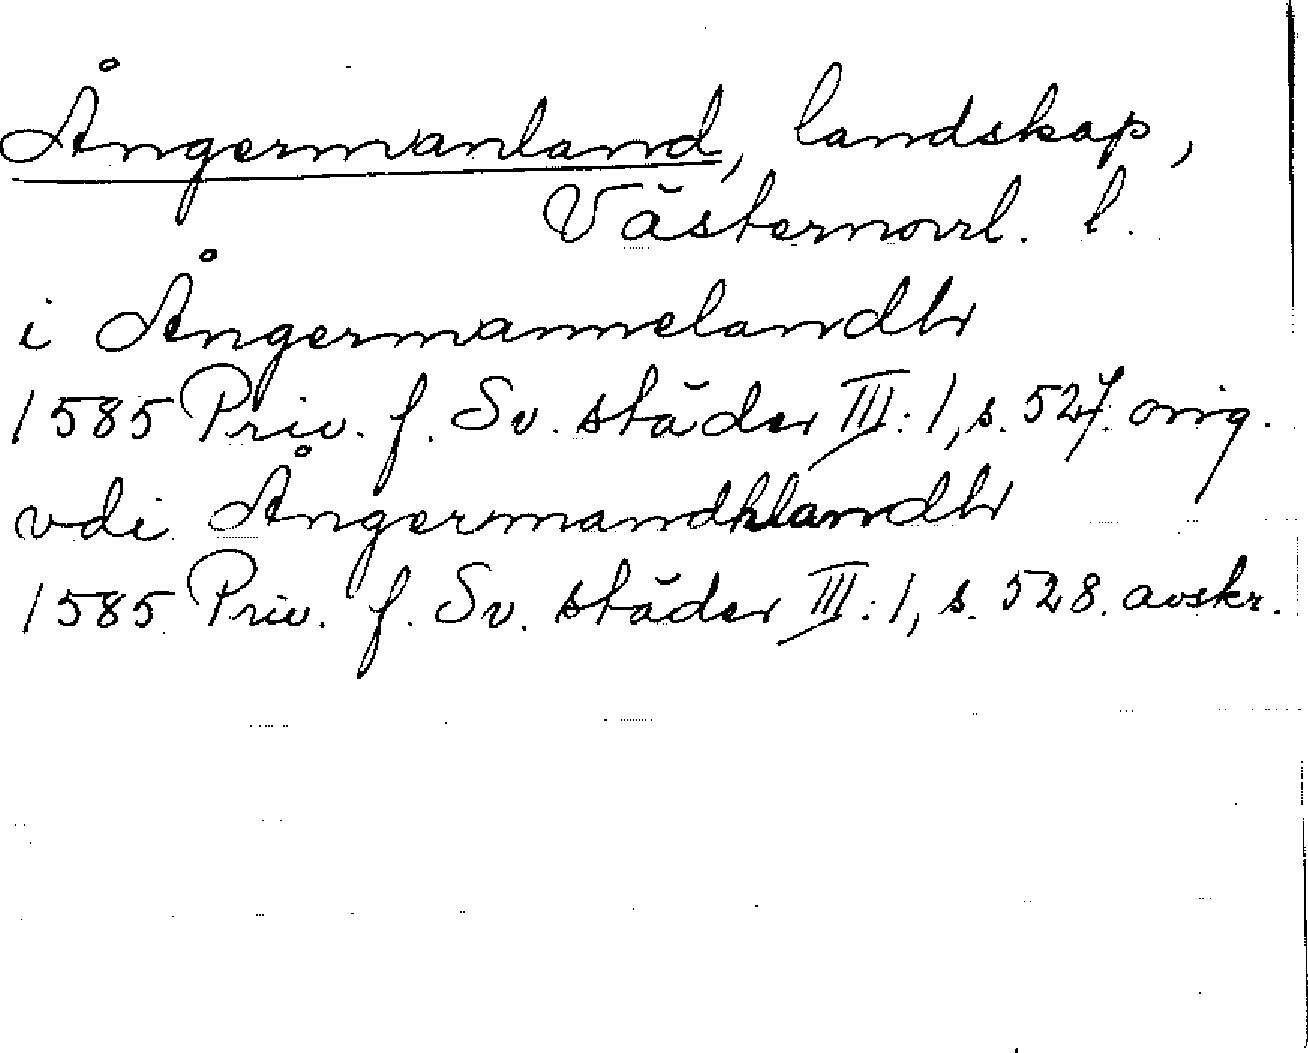 Ångermanland, landskap,
Västernorrl. l.
i Ångermannelandh
1585 Priv. f. Sv. städer III:1, s. 527. orig.
vdi Ångermandhlandh
1585 Priv. f. Sv. städer III:1, s. 528. avskr.